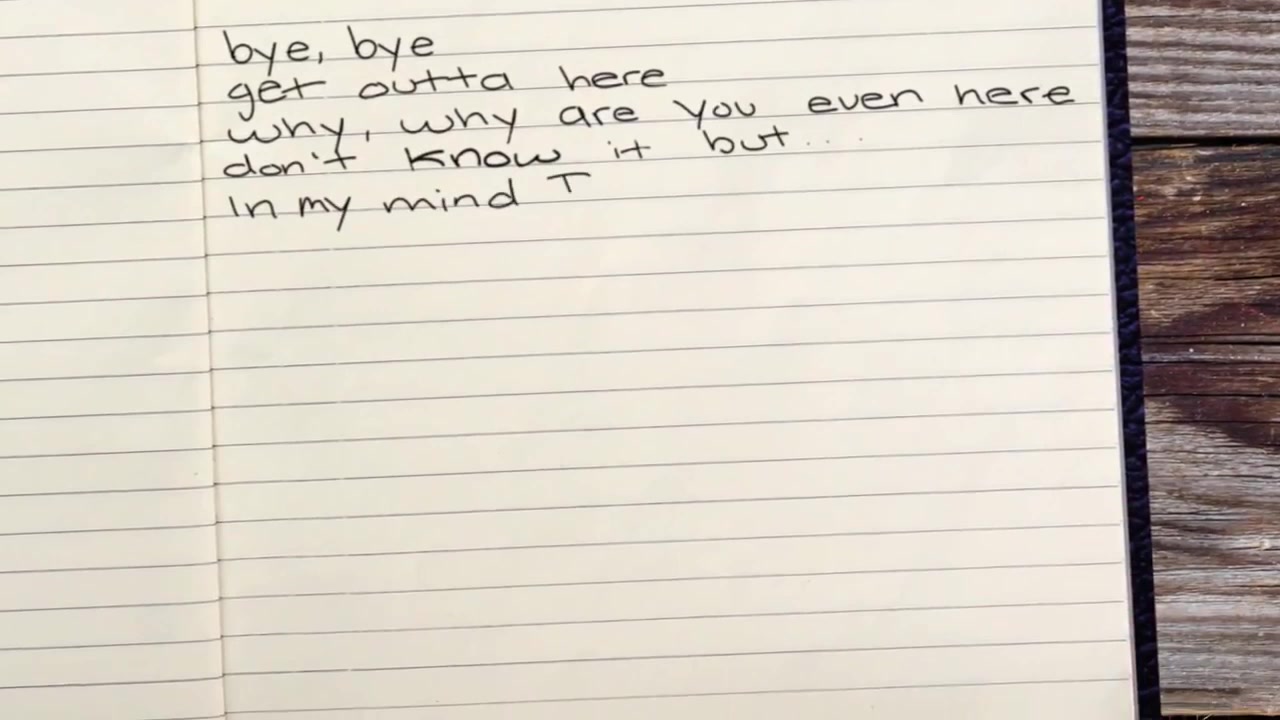 bye, bye
get outta here
why, why are you even here
don't know it but...
In my mind T